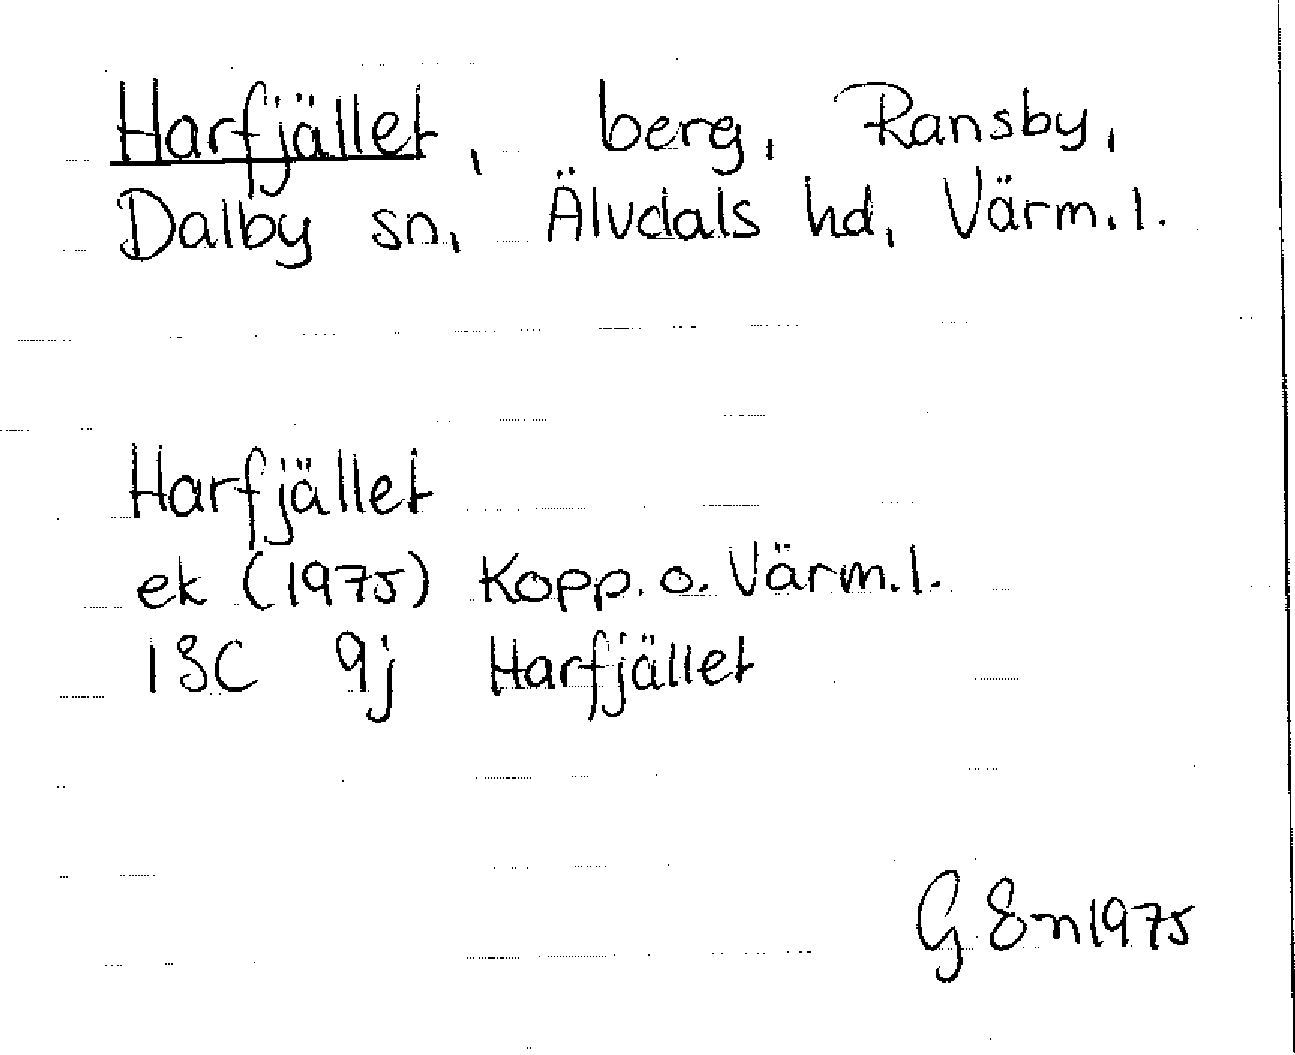 Harfjället, berg, Ransby,
Dalby sn, Älvdals hd, Värm. l.
Harfjället
ek (1975) Kopp. o. Värm. l.
13C 9j Harfjället
G. En 1975